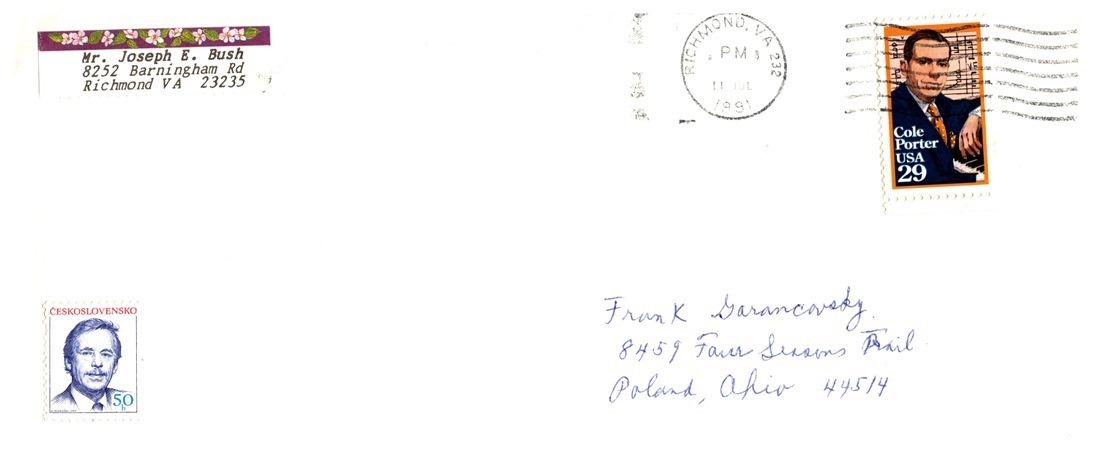 Mr. Joseph E. Bush
8252 Barningham Rd
Richmond VA 23235
RICHMOND, VA 232
PM
11 JUL
1991
Cole
Porter
USA
29
ČESKOSLOVENSKO
50
h
Frank Garancovsky.
8459 Four Seasons Trail
Poland, Ohio 44514